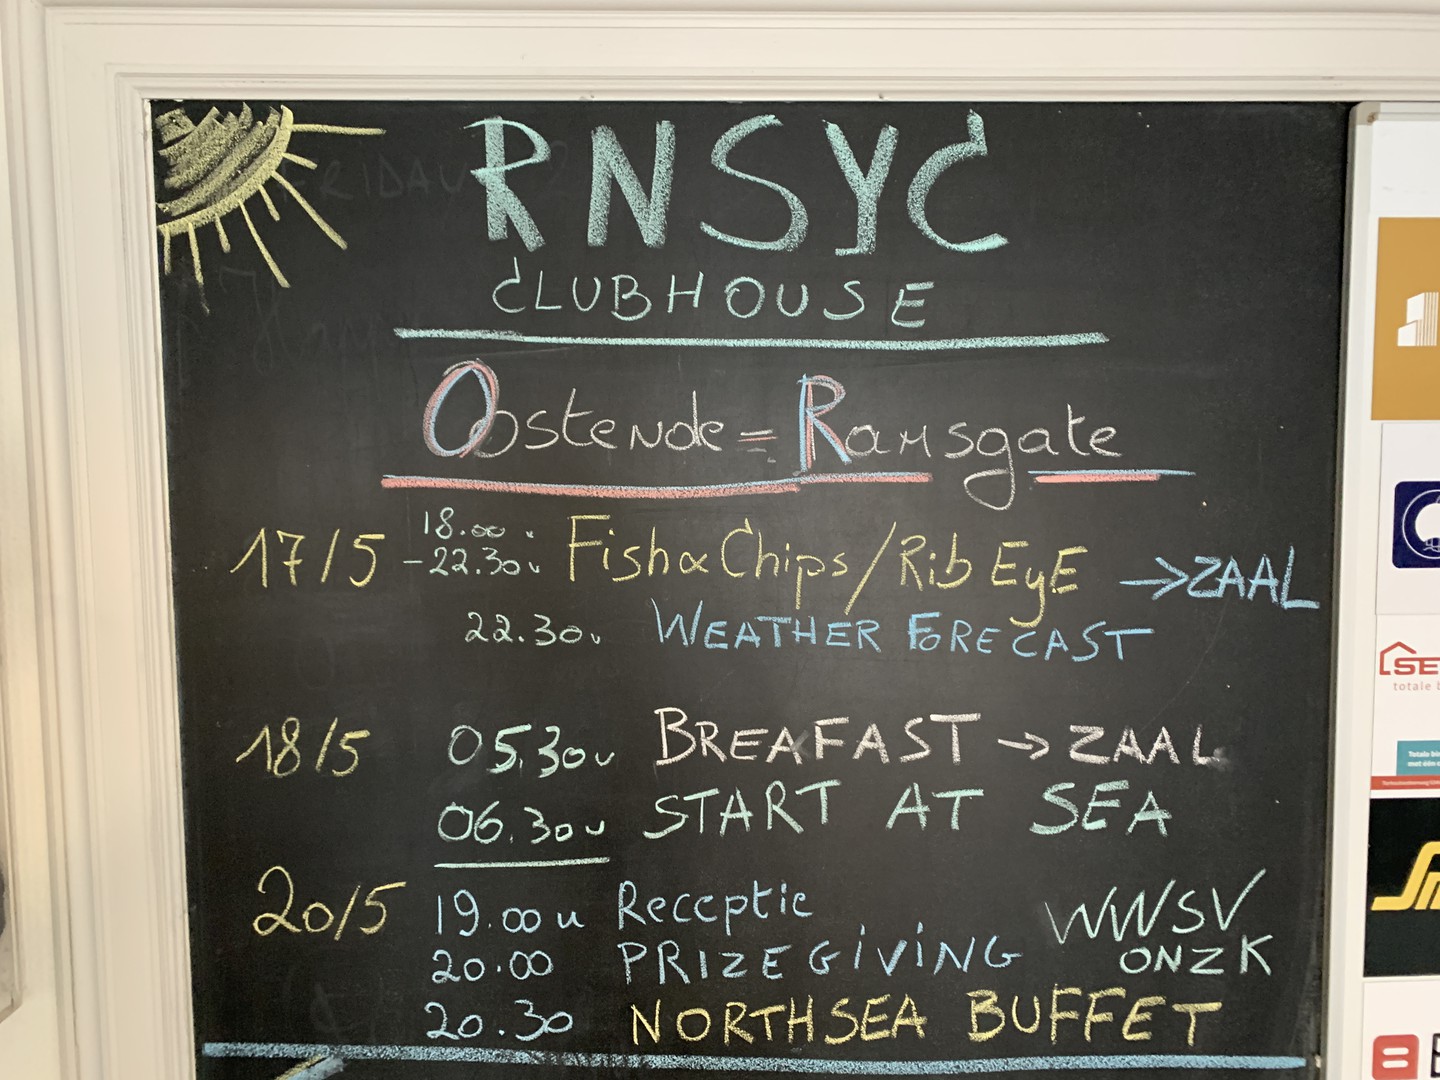 RNSYC
CLUBHOUSE
Oostende = Ramsgate
17/5 18.00 u - 22.30 u Fish & Chips / Rib EyE → ZAAL
22.30 u WEATHER FORECAST
18/5 05.30 u BREAFAST → ZAAL
06.30 u START AT SEA
20/5 19.00 u Receptie WWSV
20.00 PRIZEGIVING ONZK
20.30 NORTHSEA BUFFET
SE
totale b
Totale bi
met één c